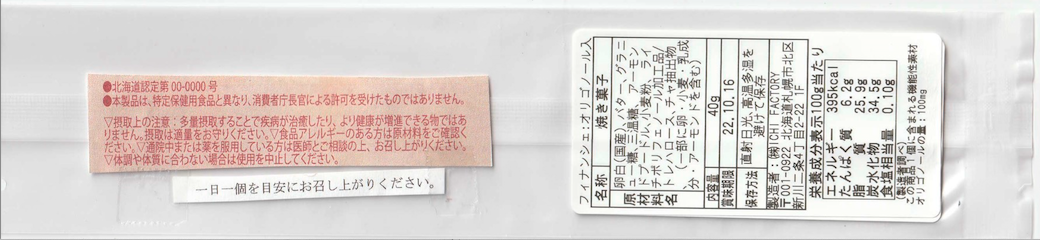 ●北海道認定第 00-0000 号
●本製品は、特定保健用食品と異なり、消費者庁長官による許可を受けたものではありません。
▽摂取上の注意：多量摂取することで疾病が治癒したり、より健康が増進できる物ではあ
りません。摂取は適量をお守りください。▽食品アレルギーのある方は原材料をご確認く
ださい。▽通院中または薬を服用している方は医師とご相談の上、お召し上がりください。
▽体調や体質に合わない場合は使用を中止してください。
一日一個を目安にお召し上がりください。
フィナンシェ:オリゴノール入
名称 焼き菓子
原材料名 卵白(国産)、バター、グラニ
ュー糖、三温糖、アーモン
ドプードル、小麦粉、ライ
チポリフェノール加工品/
トレハロース、チャ抽出物
(一部に卵・小麦・乳成
分・アーモンドを含む)
内容量 40g
賞味期限 22.10.16
保存方法 直射日光、高温多湿を
避けて保存
製造者:㈱ICHI FACTORY
〒001-0922 北海道札幌市北区
新川二条4丁目2-22 1F
栄養成分表示100g当たり
エネルギー 395kcal
たんぱく質 6.2g
脂質 25.9g
炭水化物 34.5g
食塩相当量 0.10g
(製造者調べ)
この商品1個に含まれる機能性素材
オリゴノールの量：100mg